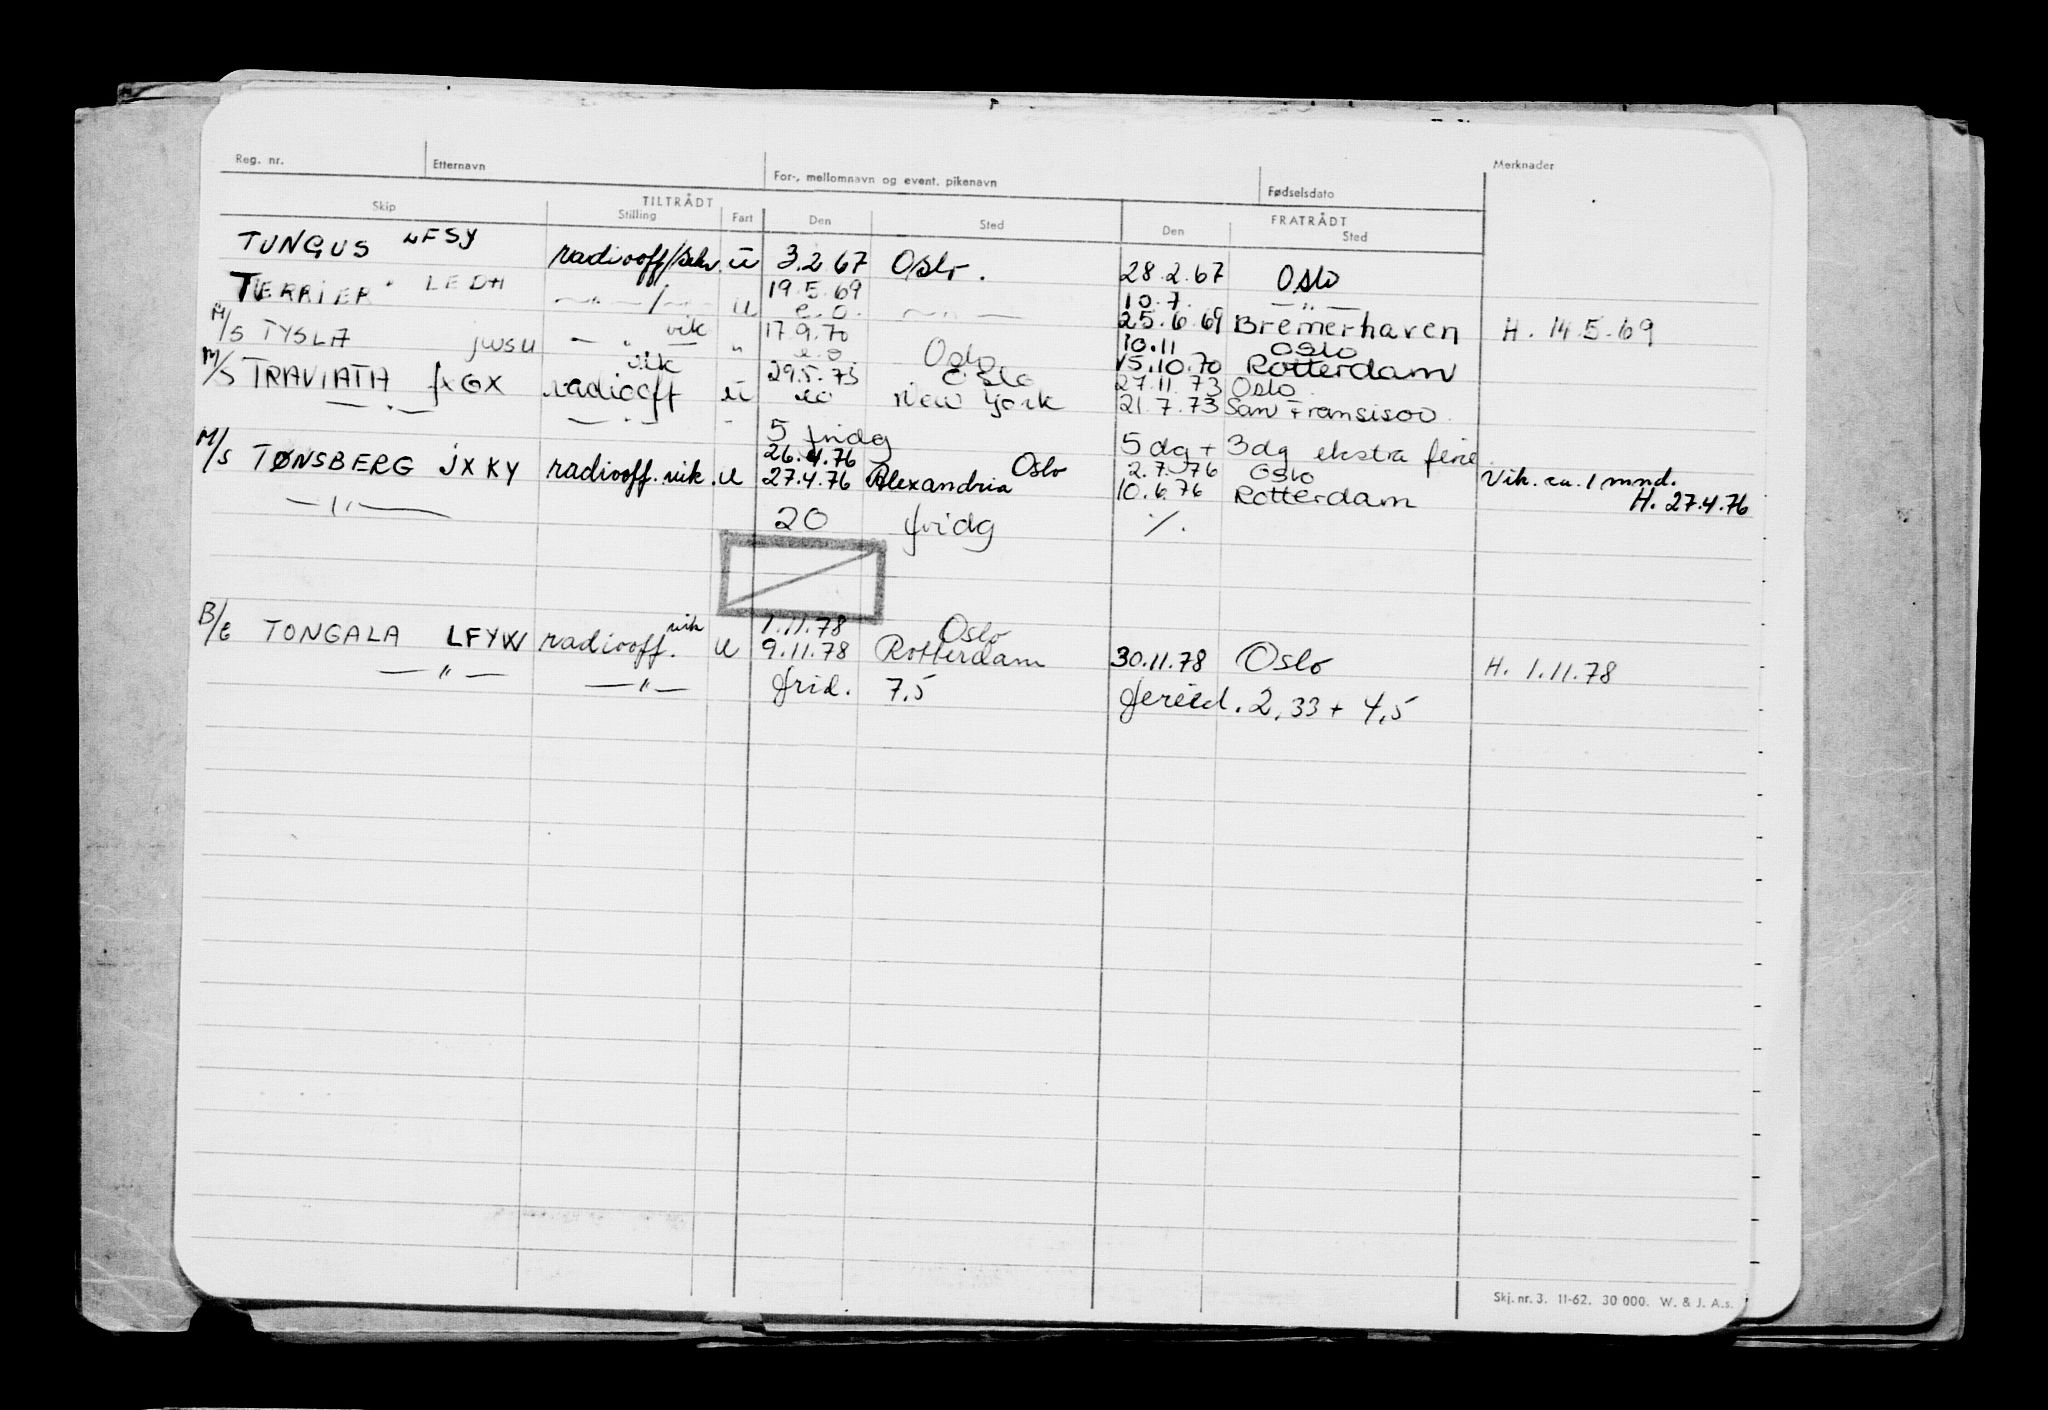 Reg. nr. Etternavn For-, mellomnavn og event. pikenavn Fødselsdato Merknader
TILTRÅDT FRATRÅDT
Skip Stilling Fart Den Sted Den Sted
TUNGUS LFSY radiooff/sekr. u 3.2 67 Oslo. 28.2.67 Oslo
TERRIER LEDH —"—/—"— u 19.5.69 10.7. —"—
e.o. —"— 25.6.69 Bremerhaven H. 14.5.69
M/S TYSLA JWSU —"— vik " 17.9.70 Oslo 10.11 Oslo
e.o 15.10.70 Rotterdam
M/S TRAVIATA JXGX radiooff vik u 29.5.73 Oslo 27.11.73 Oslo
—"— eo New York 21.7.73 San Fransisco
—"— " 5 fridg 5 dg + 3dg ekstra ferie
M/S TØNSBERG JXKY radiooff. vik. u 26.4.76 Oslo 2.7.76 Oslo Vik. ca. 1 mnd.
—"— 27.4.76 Alexandria 10.6.76 Rotterdam H. 27.4.76
20 fridg ⁒
B/C TONGALA LFYW radiooff. vik u 1.11.78 Oslo
9.11.78 Rotterdam 30.11.78 Oslo H. 1.11.78
—"— —"— frid. 7,5 feried. 2,33 + 4,5
Skj. nr. 3. 11-62. 30 000. W. & J. A.s.